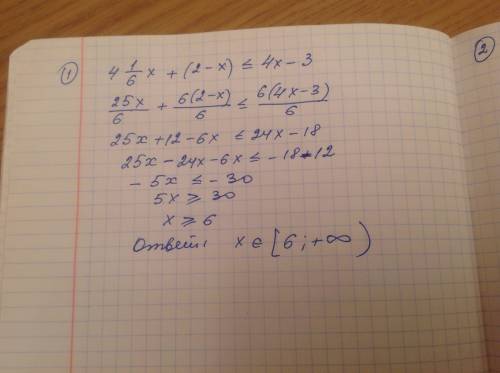 ① 4 1/6 x + (2-x) ≤ 4x-3
25x/6 + 6(2-x)/6 ≤ 6(4x-3)/6
25x+12-6x ≤ 24x-18
25x-24x-6x ≤ -18-12
-5x ≤ -30
5x ≥ 30
x ≥ 6
Ответ: x ∈ [6; +∞)
②